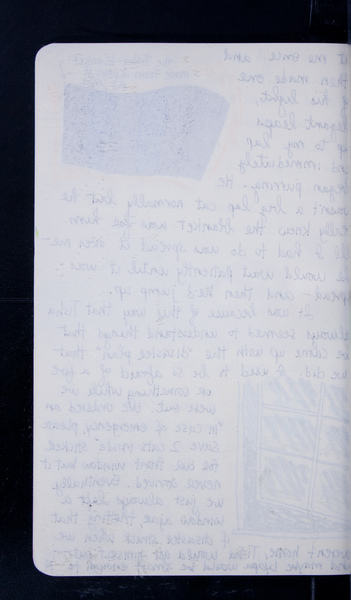 at me once and
then made one
of his light,
elegant leaps
up to my lap
and immediately
began purring. He
wasn't a big lap cat normally but he
really knew the blanket was for him
all I had to do was spread it over me-
he would wait patiently until it was
spread - and then he'd jump up.
It was because of this way that Tisha
always seemed to understand things that
we came up with the "disaster plan" that
we did. I used to be so afraid of a fire
or something while we
were out. We ordered an
"in case of emergency, please
save 2 cats inside" sticker
for our front window but it
never arrived. Eventually
we just always left a
window ajar thinking that
if disaster struck when we
weren't home, Tisha would
and maybe would be smart enough to